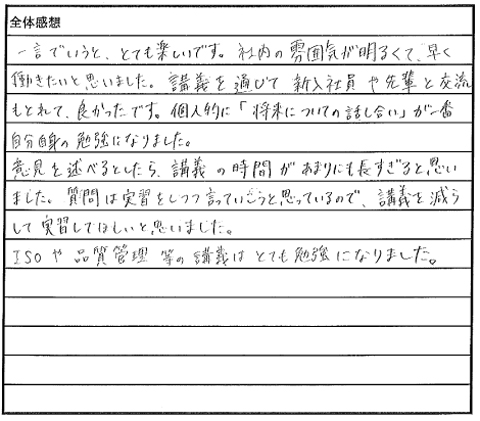 全体感想
一言でいうと、とても楽しいです。社内の雰囲気が明るくて、早く
働きたいと思いました。講義を通じて新入社員や先輩と交流
もとれて、良かったです。個人的に「将来についての話し合い」が一番
自分自身の勉強になりました。
意見を述べるとしたら、講義の時間があまりにも長すぎると思い
ました。質問は実習をしつつ言っていこうと思っているので、講義を減ら
して実習してほしいと思いました。
ISOや品質管理等の講義はとても勉強になりました。